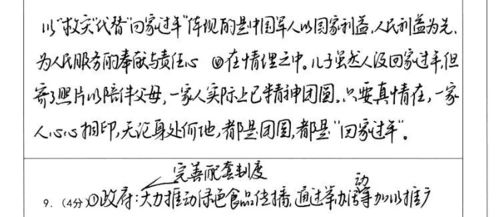 以“救灾”代替“回家过年”体现的是中国军人以国家利益,人民利益为先,
为人民服务的奉献与责任心 ②在情理之中。儿子虽然人没回家过年,但
寄了照片以陪伴父母,一家人实际上已精神团圆。只要真情在,一家
人心心相印,无论身处何地,都是团圆,都是“回家过年”。
完善配套制度
9. (4分) ①政府:大力推动绿色食品传播,通过举办活动等加以推广